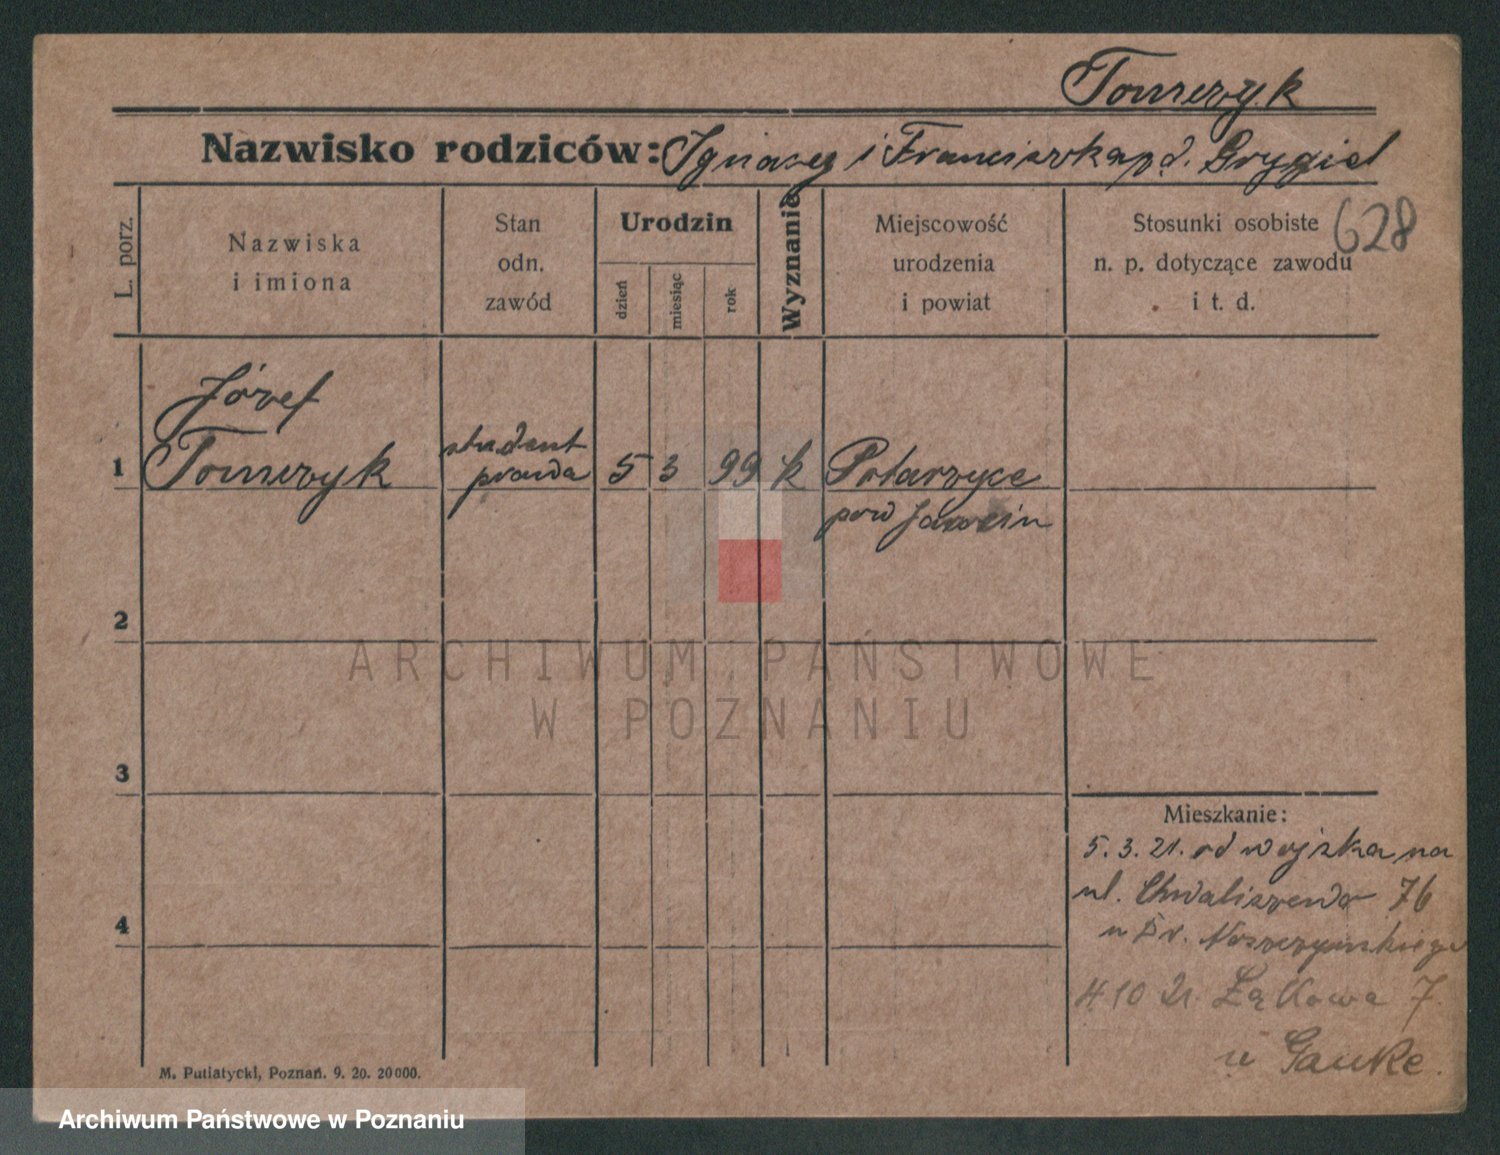 Tomczyk
Nazwisko rodziców: Ignacy i Franciszka pd. Grygiel
628
L. porz.
Nazwiska
i imiona
Stan
odn.
zawód
Urodzin
dzień
miesiąc
rok
Wyznanie
Miejscowość
urodzenia
i powiat
Stosunki osobiste
n. p. dotyczące zawodu
i t. d.
Józef
1 Tomczyk student prawa 5 3 99 k Potarzyce
pow Jarocin
2
ARCHIWUM PAŃSTWOWE
W POZNANIU
3
Mieszkanie:
5. 3. 21. od wojska na
ul. Chwaliszewo 76
4
u Fr.
4 10 21. Łąkowa 7.
u Gauke.
M. Putiatycki, Poznań. 9. 20. 20000.
Archiwum Państwowe w Poznaniu